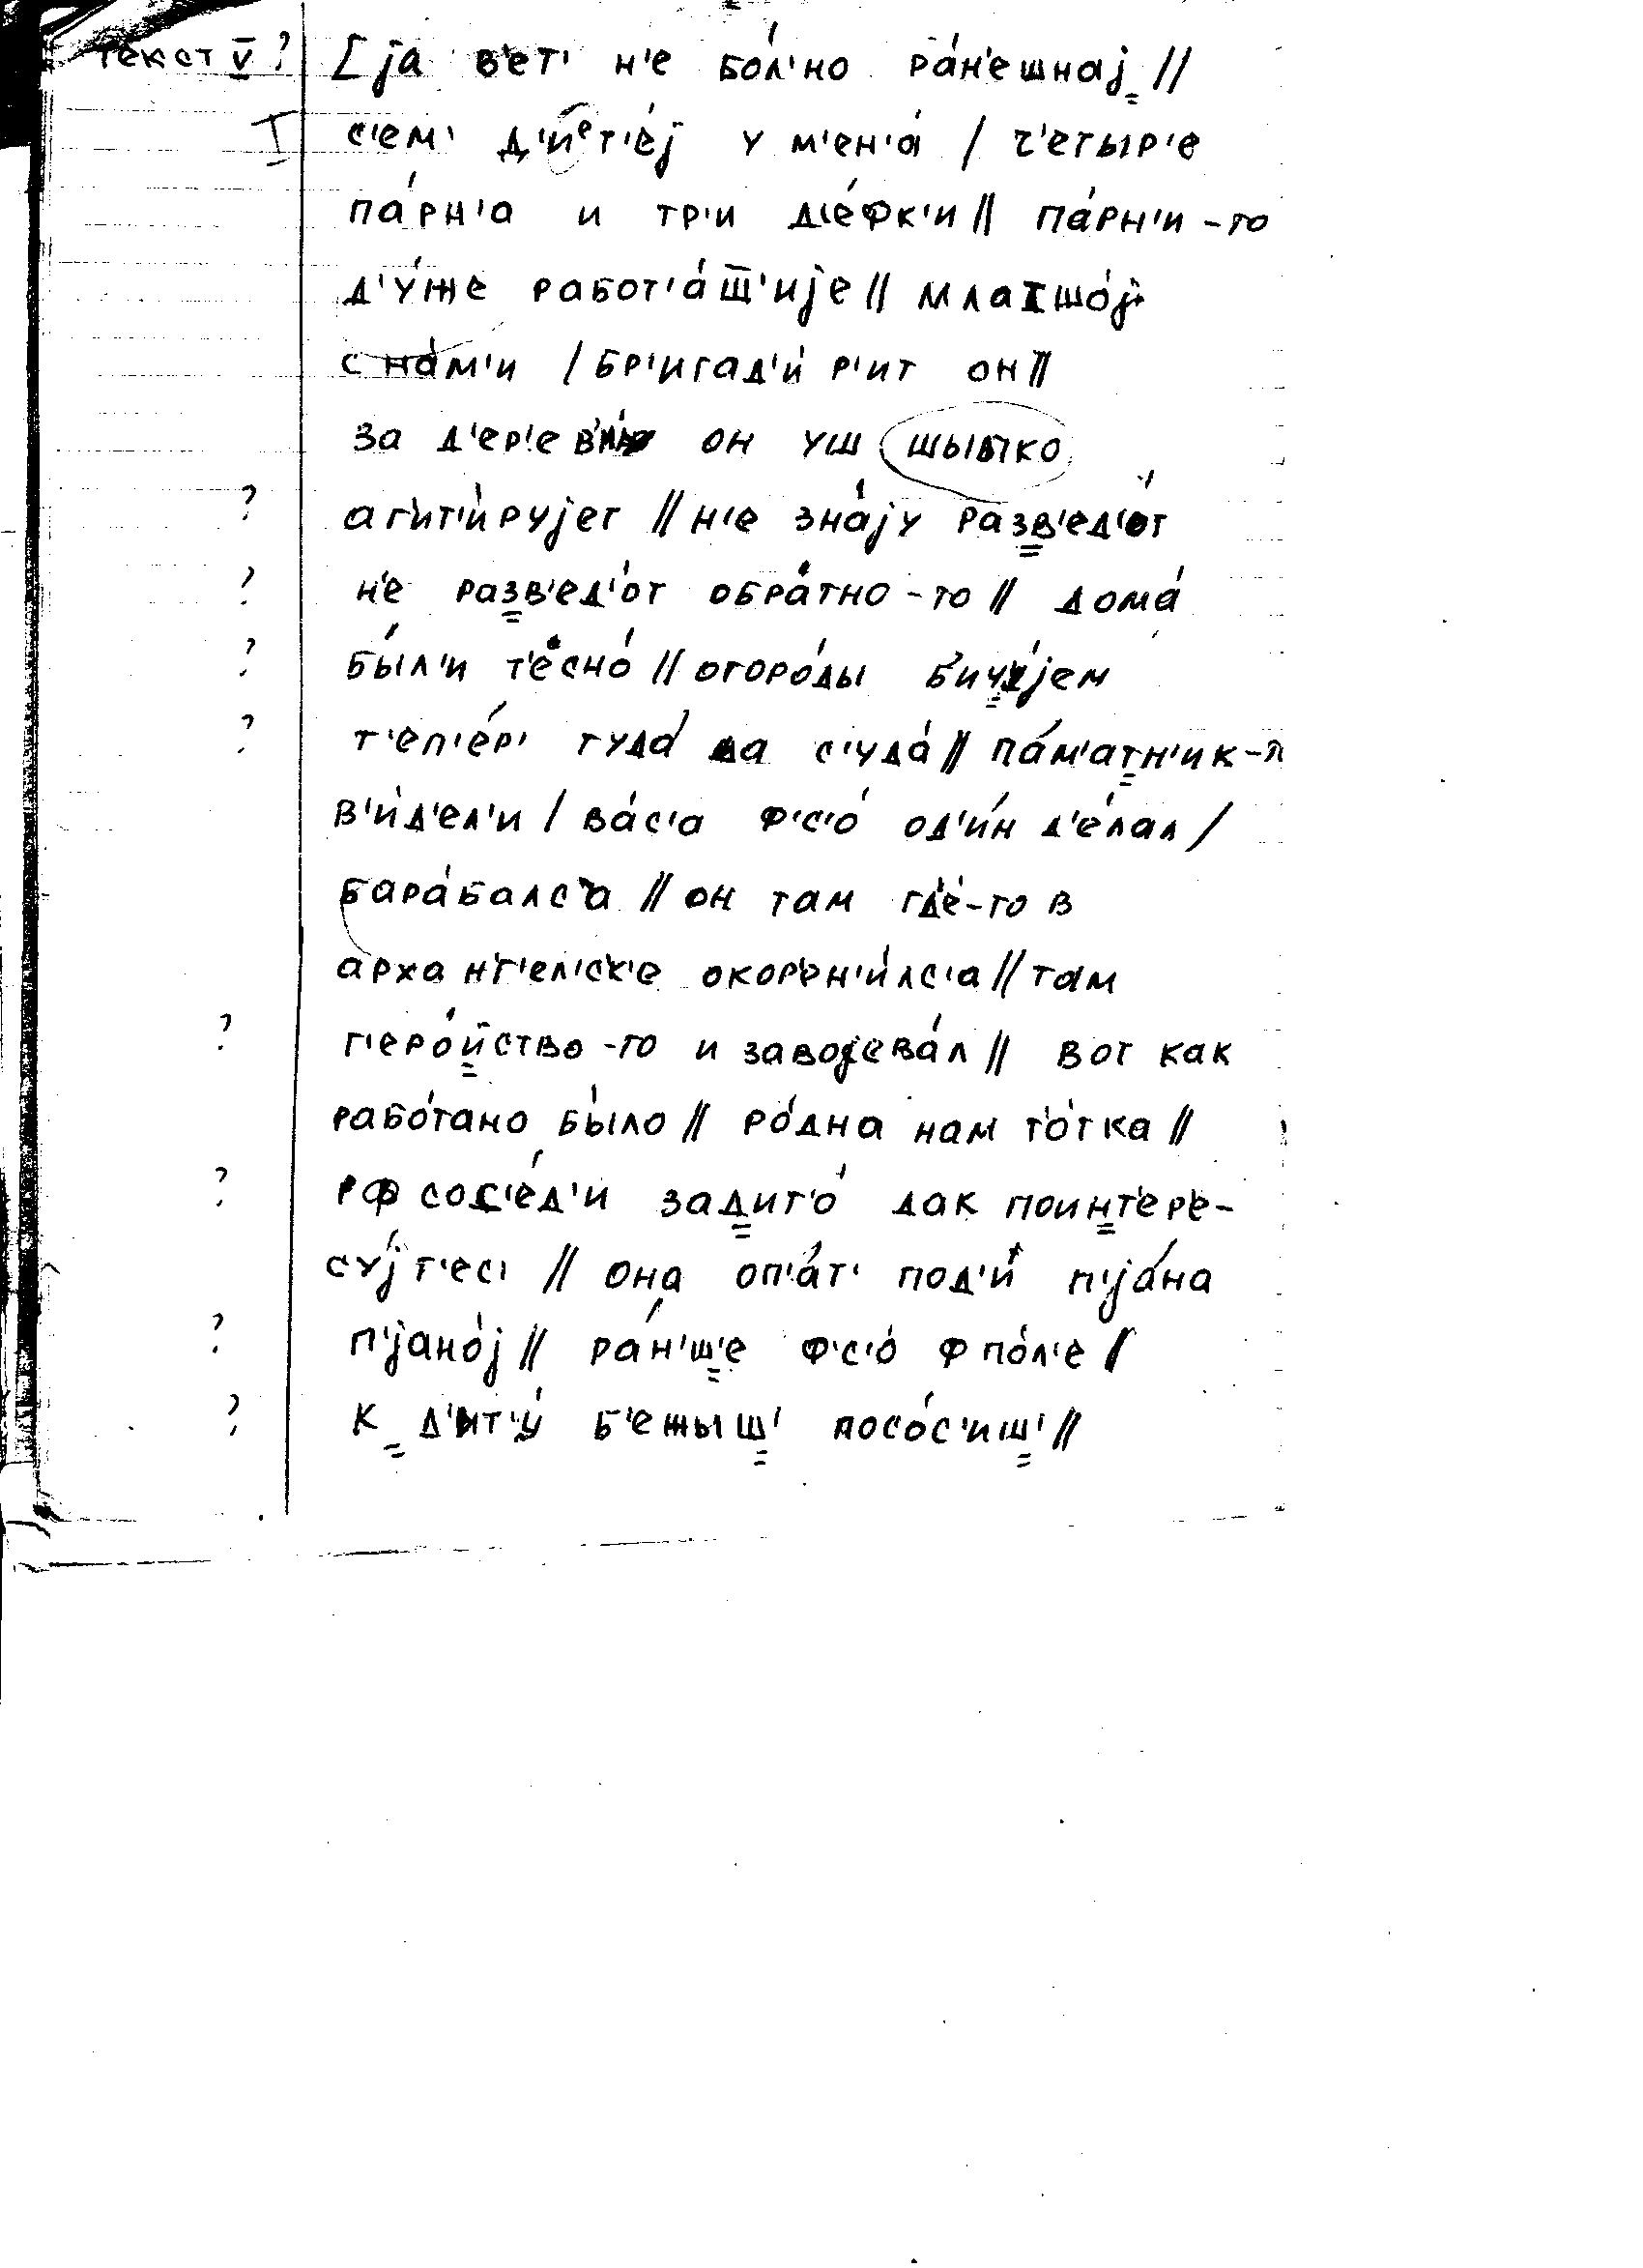 текст V ? [jа в'ет' н'е бо́л'но ра́н'ешнаj //
I с'ем' д'иет'е́j у м'ен'а́ / ч'етыр'е
па́рн'а и тр'и д'е́фк'и // па́рн'и-то
д'у́же работ'а́ш̅'иjе // млатшо́j
с на́м'и / бр'игад'и́р'ит он //
за д'ер'евн'у он уш шыпко
? аг'ит'и́руjет // н'е зна́jу разв'ед'о́т
? н'е разв'ед'о́т обра́тно-то // дома́
? бы́л'и т'е́сно́ // огоро́ды бичу́jем
? т'еп'е́р' туда́ да с'уда́ // па́м'атн'ик-л
в'и́д'ел'и / ва́с'а ф'с'о́ од'и́н д'е́лал /
бара́балс'а // он там гд'е́-то в
арха́нг'ел'ск'е окор'ен'и́лс'а // там
? г'еро́йство-то и завоjева́л // вот как
рабо́тано бы́ло // ро́дна нам т'о́тка //
? ф сос'е́д'и зад'иг'о́ дак поинт'ер'е-
су́jт'ес' // она оп'а́т' под'и́ п'jа́на
? п'jано́j // ра́н'ш'е ф'с'о́ ф по́л'е /
? к д'ит'у́ б'ежыш' посо́с'иш' //